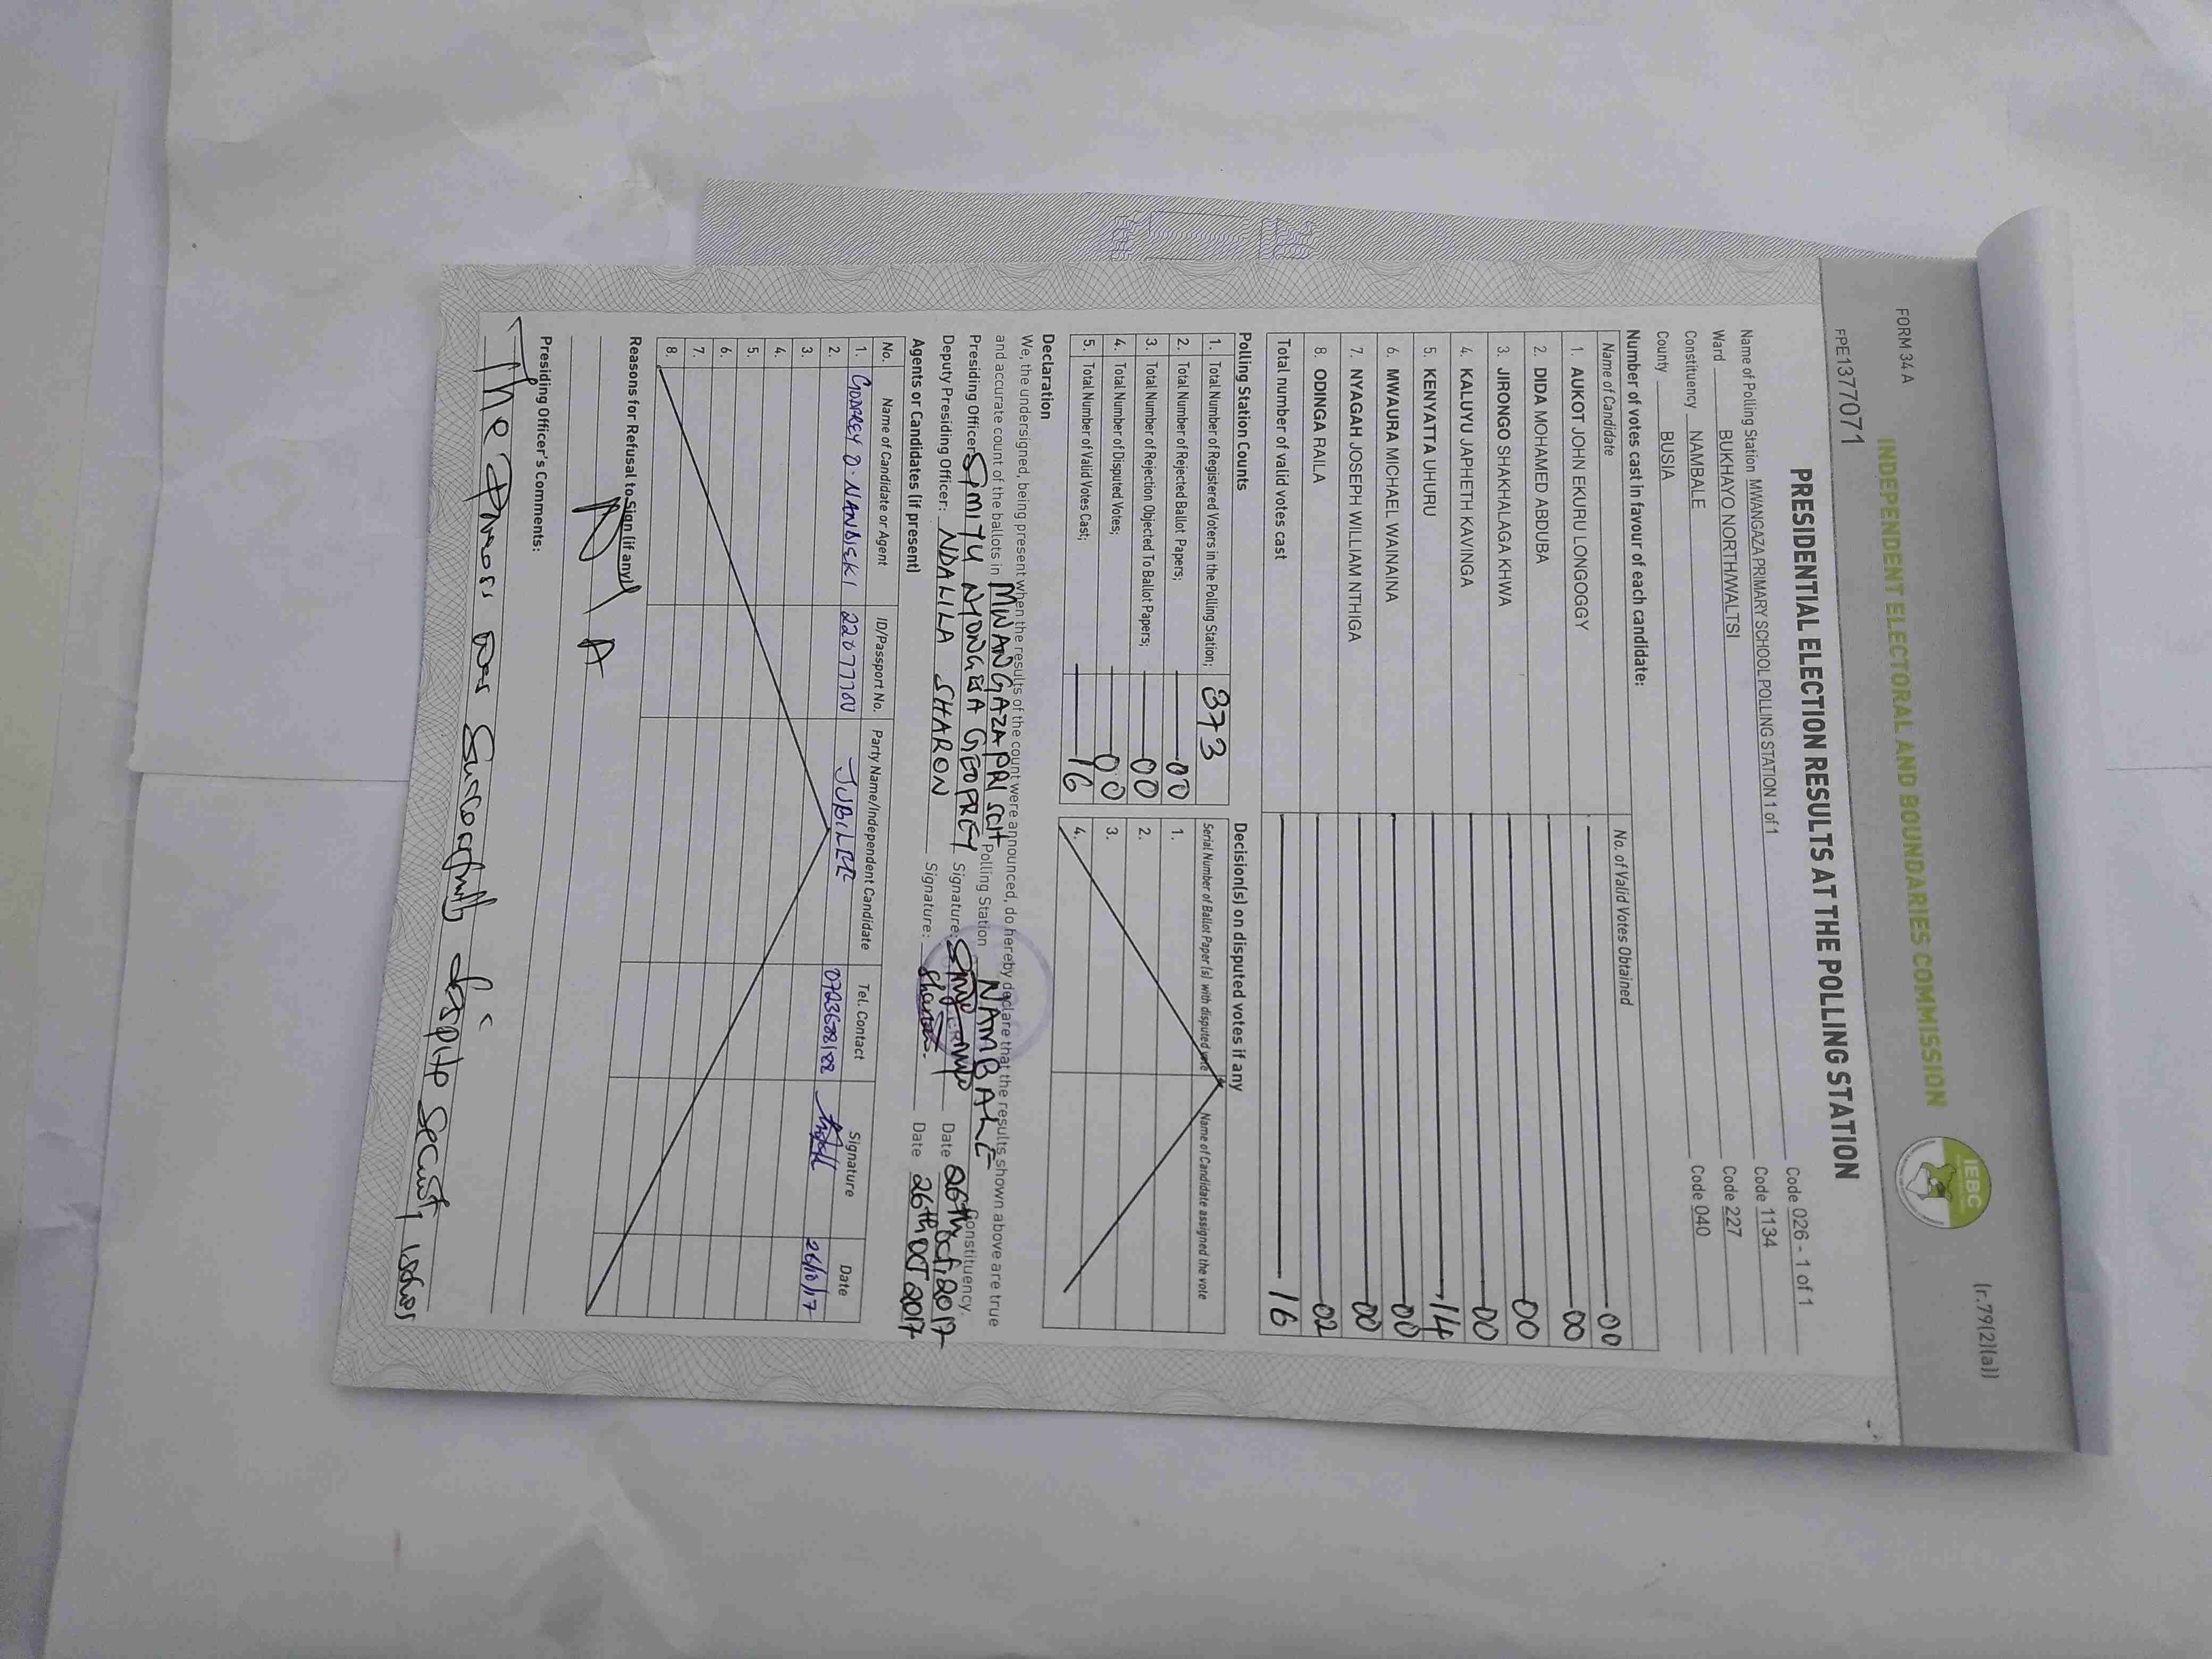 FORM 34 A
(r.79(2)(a))
INDEPENDENT ELECTORAL AND BOUNDARIES COMMISSION
IEBC
FPE137071
PRESIDENTIAL ELECTION RESULTS AT THE POLLING STATION
Name of Polling Station MWANGAZA PRIMARY SCHOOL POLLING STATION 1 of 1 Code 026 - 1 of 1
Ward BUKHAYO NORTH/WALTSI Code 1134
Constituency NAMBALE Code 227
County BUSIA Code 040
Number of votes cast in favour of each candidate:
Name of Candidate No. of Valid Votes Obtained
1. AUKOT JOHN EKURU LONGOGGY 00
2. DIDA MOHAMED ABDUBA 00
3. JIRONGO SHAKHALAGA KHWA 00
4. KALUYU JAPHETH KAVINGA 00
5. KENYATTA UHURU 14
6. MWAURA MICHAEL WAINAINA 00
7. NYAGAH JOSEPH WILLIAM NTHIGA 00
8. ODINGA RAILA 02
Total number of valid votes cast 16
Polling Station Counts
1. Total Number of Registered Voters in the Polling Station; 373
2. Total Number of Rejected Ballot Papers; 00
3. Total Number of Rejection Objected To Ballot Papers; 00
4. Total Number of Disputed Votes; 00
5. Total Number of Valid Votes Cast; 16
Decision(s) on disputed votes if any
Serial Number of Ballot Paper(s) with disputed vote Name of Candidate assigned the vote
1.
2.
3.
4.
Declaration
We, the undersigned, being present when the results of the count were announced, do hereby declare that the results shown above are true
and accurate count of the ballots in MWANGAZA PRI SCH Polling Station NAMBALE Constituency.
Presiding Officer: SMITH NYONGESA GEOFREY Signature: Date 26th Oct 2017
Deputy Presiding Officer: NDALILA SHARON Signature: Sharon. Date 26th OCT 2017
Agents or Candidates (if present)
No. Name of Candidate or Agent ID/Passport No. Party Name/Independent Candidate Tel. Contact Signature Date
1. GODFREY O. 22077700 JUBILEE 26/10/17
2.
3.
4.
5.
6.
7.
8.
Reasons for Refusal to Sign (if any)
N A
Presiding Officer's Comments:
The Process was Successfully despite Security issues